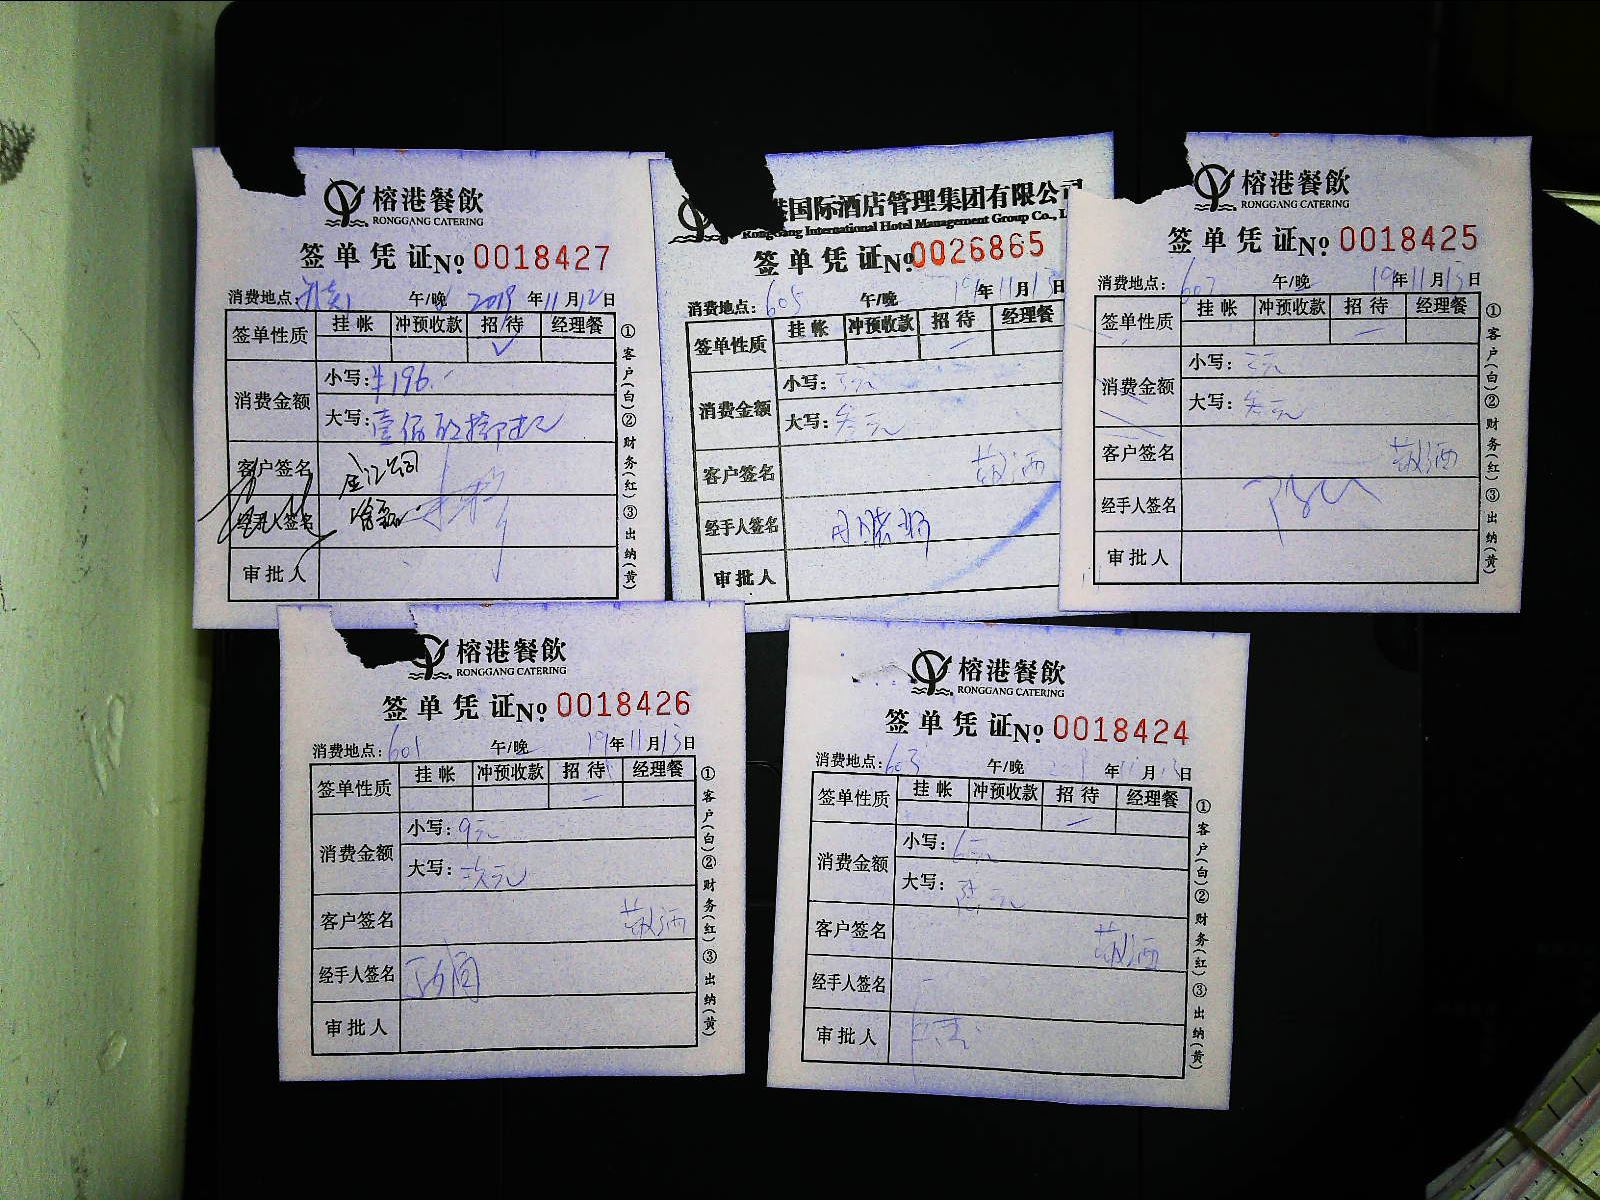 榕港餐飲
RONGGANG CATERING
签单凭证 No. 0018427
消费地点: 午/晚 2019年11月12日
签单性质 挂帐 冲预收款 招待 经理餐
✓
消费金额 小写: ¥196.-
大写: 壹佰玖拾陆元
客户签名
经手人签名
审批人
①客户(白)②财务(红)③出纳(黄)
港国际酒店管理集团有限公司
RongGang International Hotel Management Group Co., L
签单凭证 No. 0026865
消费地点: 605 午/晚 19年11月13日
签单性质 挂帐 冲预收款 招待 经理餐
消费金额 小写: 3元
大写: 叁元
客户签名 敬酒
经手人签名
审批人
榕港餐飲
RONGGANG CATERING
签单凭证 No. 0018425
消费地点: 607 午/晚 19年11月13日
签单性质 挂帐 冲预收款 招待 经理餐
消费金额 小写: 3元
大写: 叁元
客户签名 敬酒
经手人签名
审批人
①客户(白)②财务(红)③出纳(黄)
榕港餐飲
RONGGANG CATERING
签单凭证 No. 0018426
消费地点: 601 午/晚 19年11月13日
签单性质 挂帐 冲预收款 招待 经理餐
消费金额 小写: 9元
大写: 元
客户签名 敬酒
经手人签名
审批人
①客户(白)②财务(红)③出纳(黄)
榕港餐飲
RONGGANG CATERING
签单凭证 No. 0018424
消费地点: 603 午/晚 年11月13日
签单性质 挂帐 冲预收款 招待 经理餐
消费金额 小写: 6元
大写: 陆元
客户签名 敬酒
经手人签名
审批人
①客户(白)②财务(红)③出纳(黄)